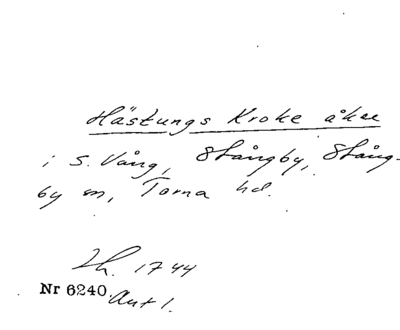 Hästungs Kroke åker
i S. Vång, Stångby, Stång-
by sn, Torna hd.
Lh. 1744
Nr 6240. Akt 1.